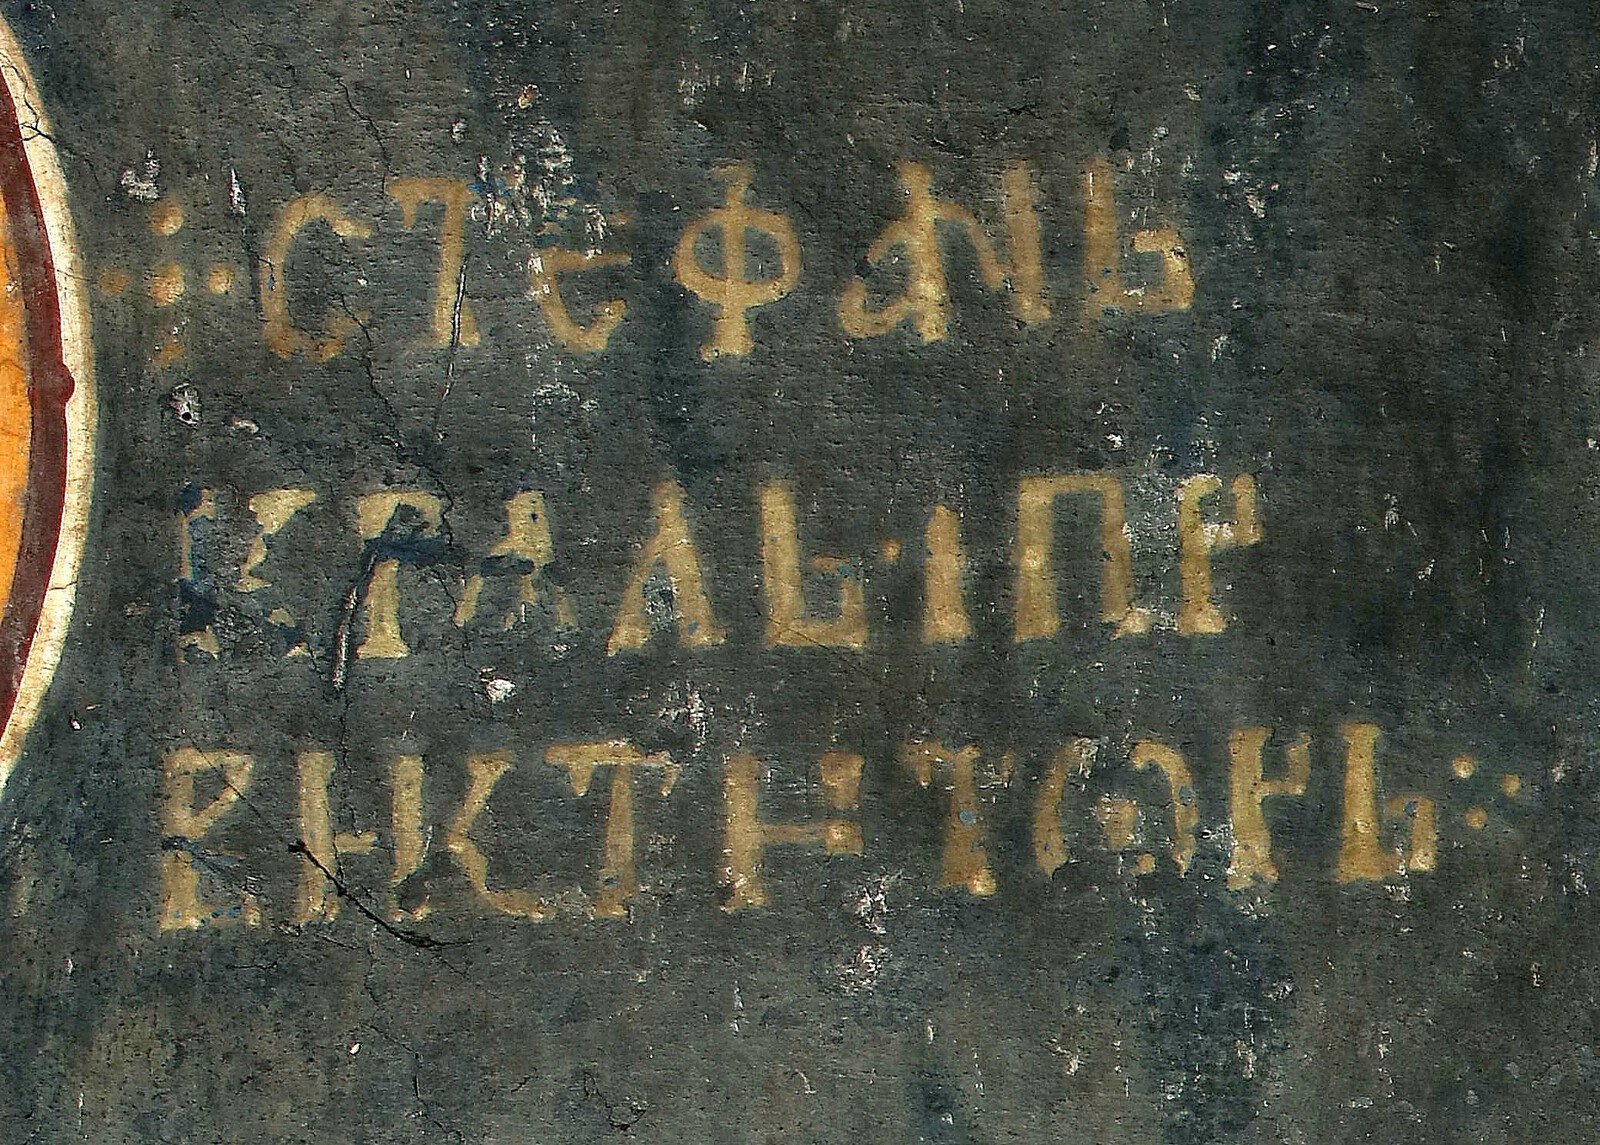 ⁘ СТЕФАНЬ
КРАЛЬ · І ПР
ВИ КТИТѠРЬ ⁘